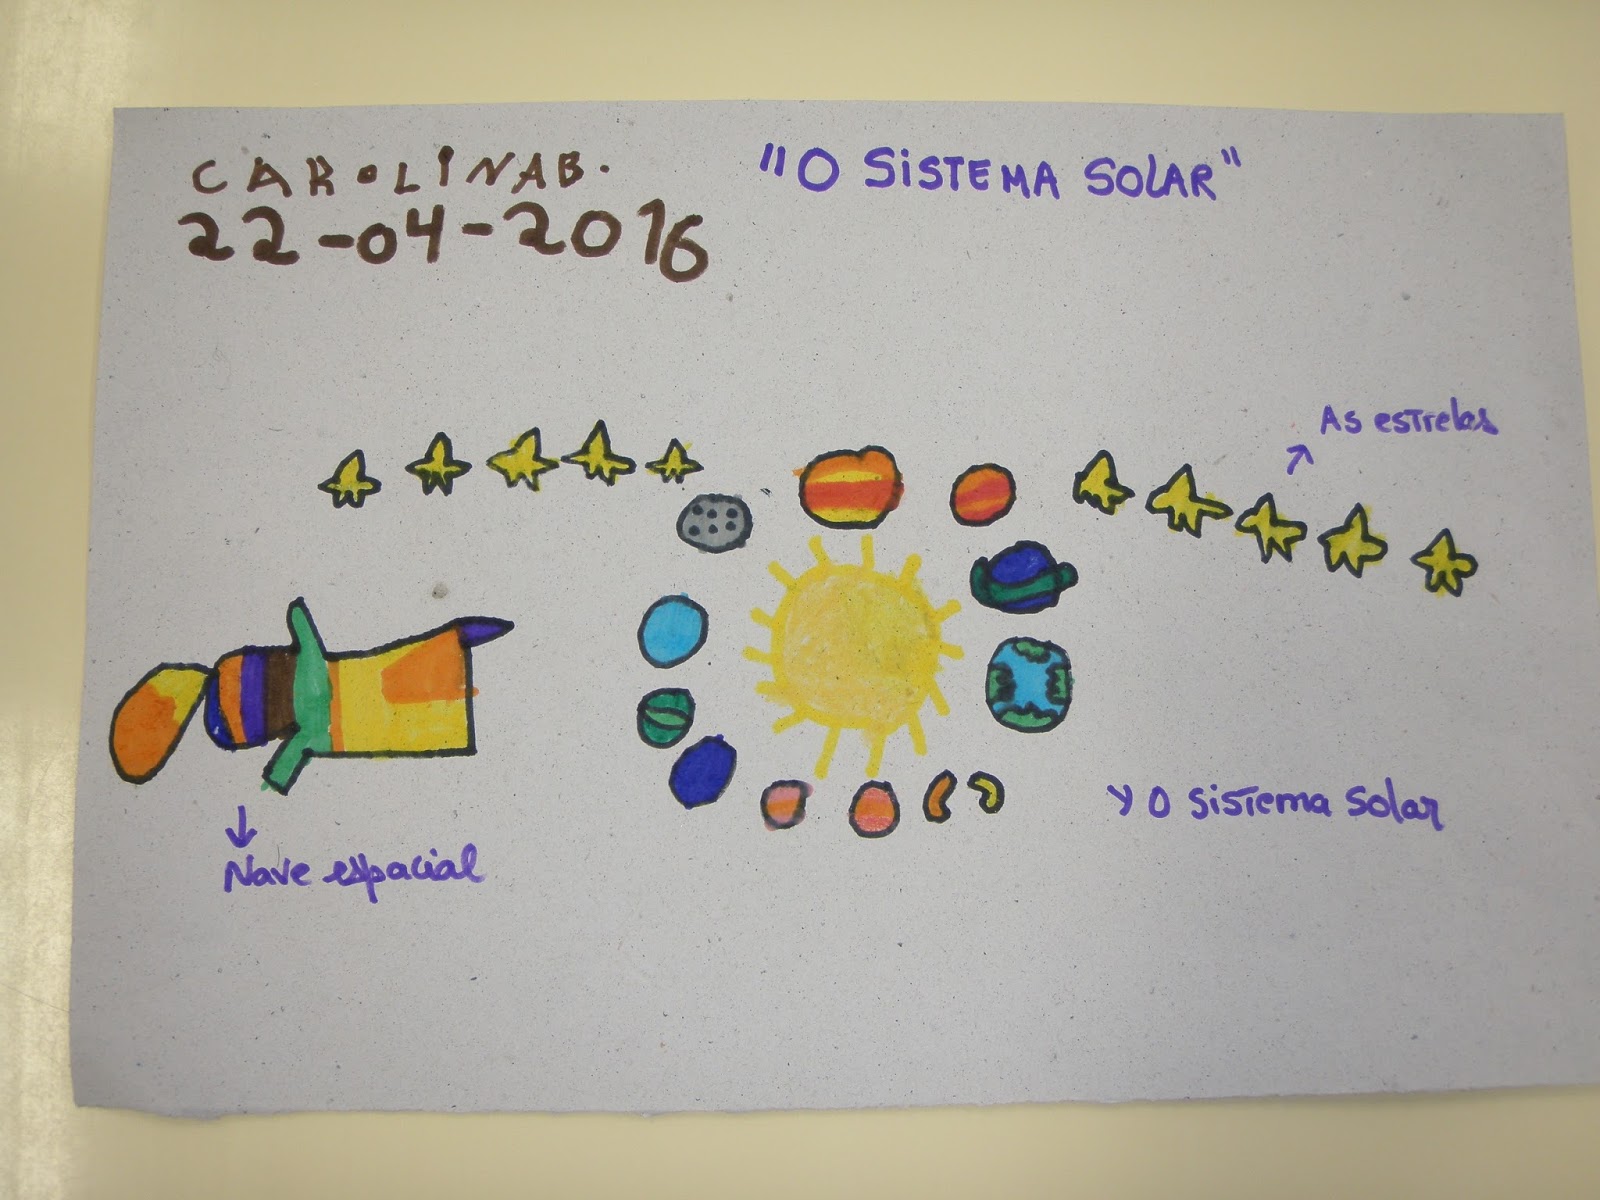 CAROLINA B.
22-04-2016
"O SiSTEMA SOLAR"
As estrelas
Nave espacial
O sistema solar